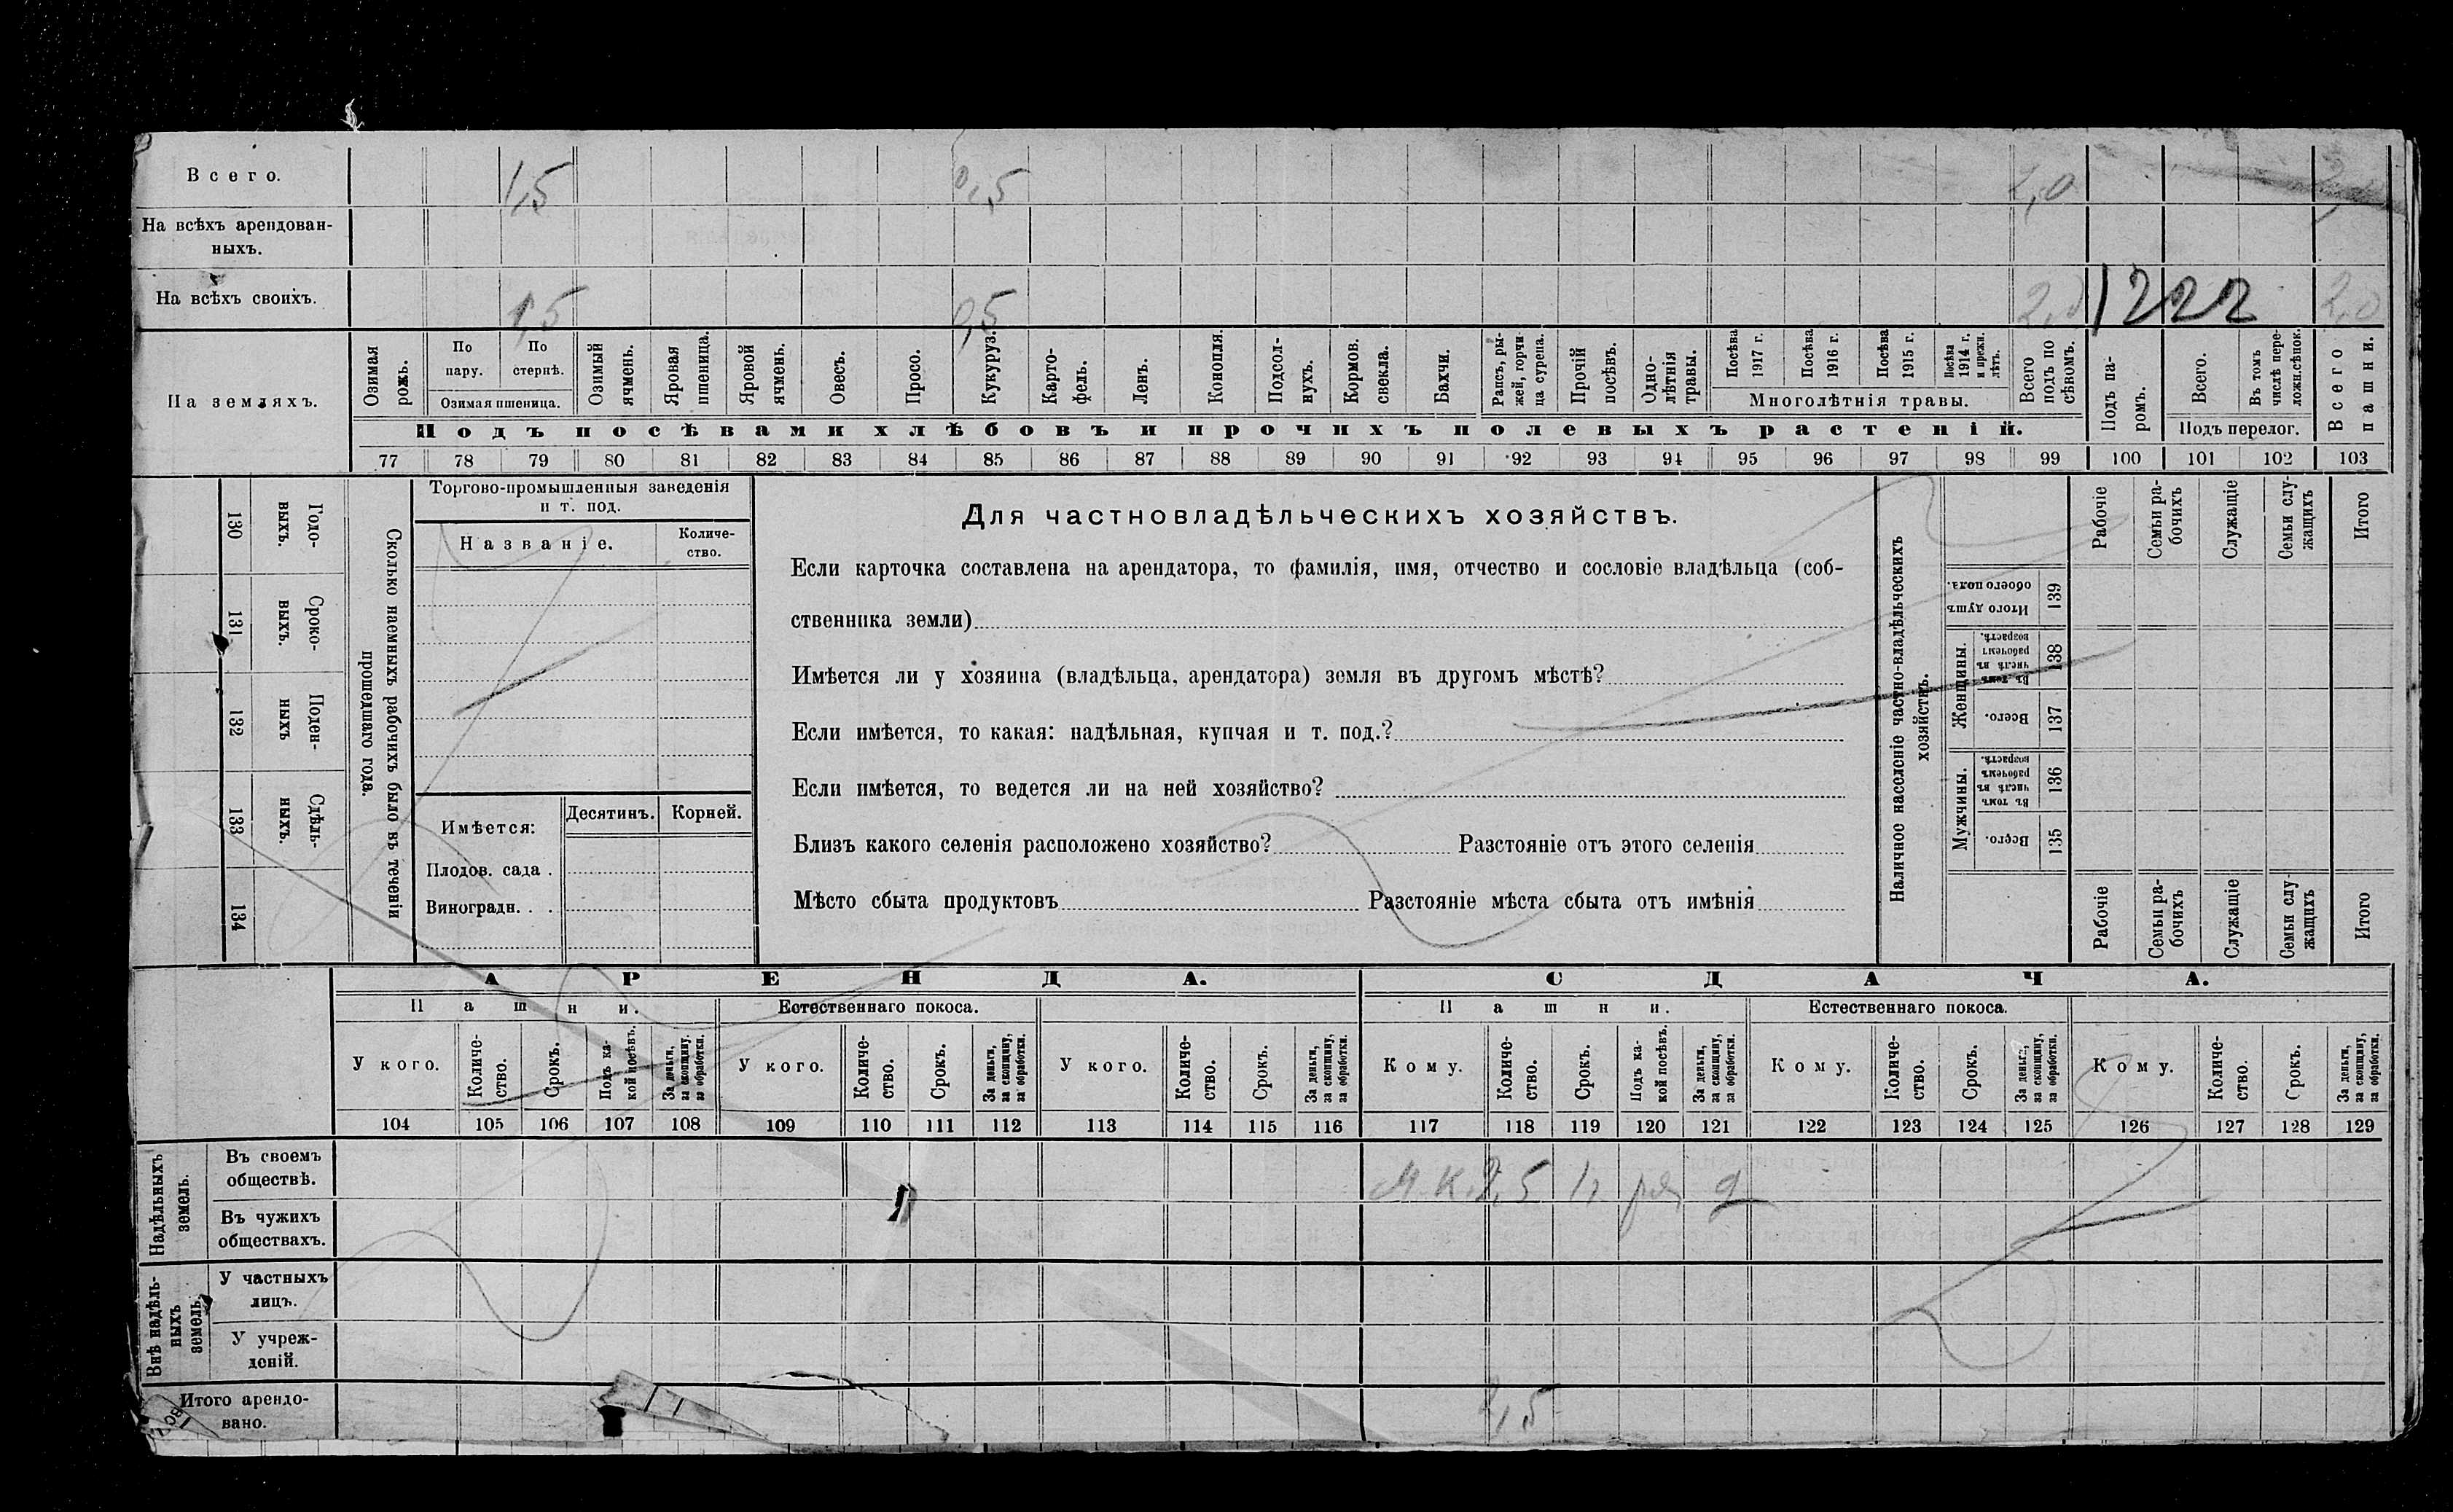 Всего. 1,5 0,5 2,0
На всѣхъ арендован-
ныхъ.
На всѣхъ своихъ. 1,5 0,5 2,0 1222 2,0
На земляхъ.
Озимая рожь.
По пару.
По стернѣ.
Озимая пшеница.
Озимый ячмень.
Яровая пшеница.
Яровой ячмень.
Овесъ.
Просо.
Кукуруза.
Карто-
фель.
Ленъ.
Конопля.
Подсол-
нухъ.
Кормов. свекла.
Бахчи.
Рапсъ, ры-
жей, горчи-
ца сурепа.
Прочій посѣвъ.
Одно-
лѣтнія травы.
Посѣва 1917 г.
Посѣва 1916 г.
Посѣва 1915 г.
Посѣва 1914 г. и прежн. лѣтъ.
Многолѣтнія травы.
Всего подъ по
сѣвомъ.
Подъ посѣвами хлѣбовъ и прочихъ полевыхъ растеній.
Подъ па-
ромъ.
Всего.
Въ томъ числѣ пере-
ложн. сѣнок.
Подъ перелог.
Всего пашни.
77 78 79 80 81 82 83 84 85 86 87 88 89 90 91 92 93 94 95 96 97 98 99 100 101 102 103
130 Годо-
выхъ.
131 Сроко-
выхъ.
132 Поден-
ныхъ
133 Сдѣль-
ныхъ.
134
Сколько наемныхъ рабочихъ было въ теченіи
прошедшаго года.
Торгово-промышленныя заведенія
и т. под.
Названіе.
Количе-
ство.
Имѣется:
Десятинъ. Корней.
Плодов. сада .
Виноградн. . .
Для частновладѣльческихъ хозяйствъ.
Если карточка составлена на арендатора, то фамилія, имя, отчество и сословіе владѣльца (соб-
ственника земли)
Имѣется ли у хозяина (владѣльца, арендатора) земля въ другомъ мѣстѣ?
Если имѣется, то какая: надѣльная, купчая и т. под.?
Если имѣется, то ведется ли на ней хозяйство?
Близъ какого селенія расположено хозяйство? Разстояніе отъ этого селенія
Мѣсто сбыта продуктовъ Разстояніе мѣста сбыта отъ имѣнія
Наличное населеніе частно-владѣльческихъ
хозяйствъ.
Рабочіе
Семьи ра-
бочихъ
Служащіе
Семьи слу-
жащихъ
Итого
Итого душъ обоего пола. 139
Женщины.
Въ томъ числѣ въ рабочемъ возрастѣ. 138
Всего. 137
Мужчины.
Въ томъ числѣ въ рабочемъ возрастѣ. 136
Всего. 135
Рабочіе
Семьи ра-
бочихъ
Служащіе
Семьи слу-
жащихъ
Итого
АРЕНДА. СДАЧА.
Пашни. Естественнаго покоса. Пашни. Естественнаго покоса.
У кого.
Количе-
ство.
Срокъ.
Подъ ка-
кой посѣвъ.
За деньги,
за скопщину,
за обработки.
У кого.
Количе-
ство.
Срокъ.
За деньги,
за скопщину,
за обработки.
У кого.
Количе-
ство.
Срокъ.
За деньги,
за скопщину,
за обработки.
Кому.
Количе-
ство.
Срокъ.
Подъ ка-
кой посѣвъ.
За деньги,
за скопщину,
за обработки.
Кому.
Количе-
ство.
Срокъ.
За деньги,
за скопщину,
за обработки.
Кому.
Количе-
ство.
Срокъ.
За деньги,
за скопщину,
за обработки.
104 105 106 107 108 109 110 111 112 113 114 115 116 117 118 119 120 121 122 123 124 125 126 127 128 129
Надѣльныхъ
земель.
Въ своемъ
обществѣ.
Въ чужихъ
обществахъ.
Внѣ надѣль-
ныхъ
земель.
У частныхъ
лицъ.
У учреж-
деній.
Итого арендо-
вано.